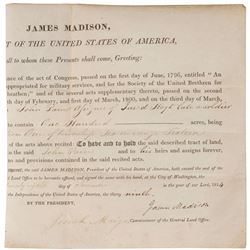 JAMES MADISON,
T OF THE UNITED STATES OF AMERICA,
all to whom these Presents shall come, Greeting:
ance of the act of Congress, passed on the first day of June, 1796, entitled "An
appropriated for military services, and for the Society of the United Brethren for
heathen" and of the several acts supplementary thereto, passed on the second
day of February, and first day of March, 1800, and on the third day of March,
of David late a soldier
to contain One Hundred acres, being
One of township Six range Sixteen
of the acts above recited: To have and to hold the said described tract of land,
John his heirs and assigns forever,
provisions contained in the said recited acts.
WHEREOF, the said JAMES MADISON, President of the United States, hath caused the seal of the
Land Office to be hereunto affixed, and signed the same with his hand, at the City of Washington, the
day of in the year of our Lord, 1814
Independence of the United States of America, the thirty ninth.
BY THE PRESIDENT,
James Madison
Commissioner of the General Land Office.